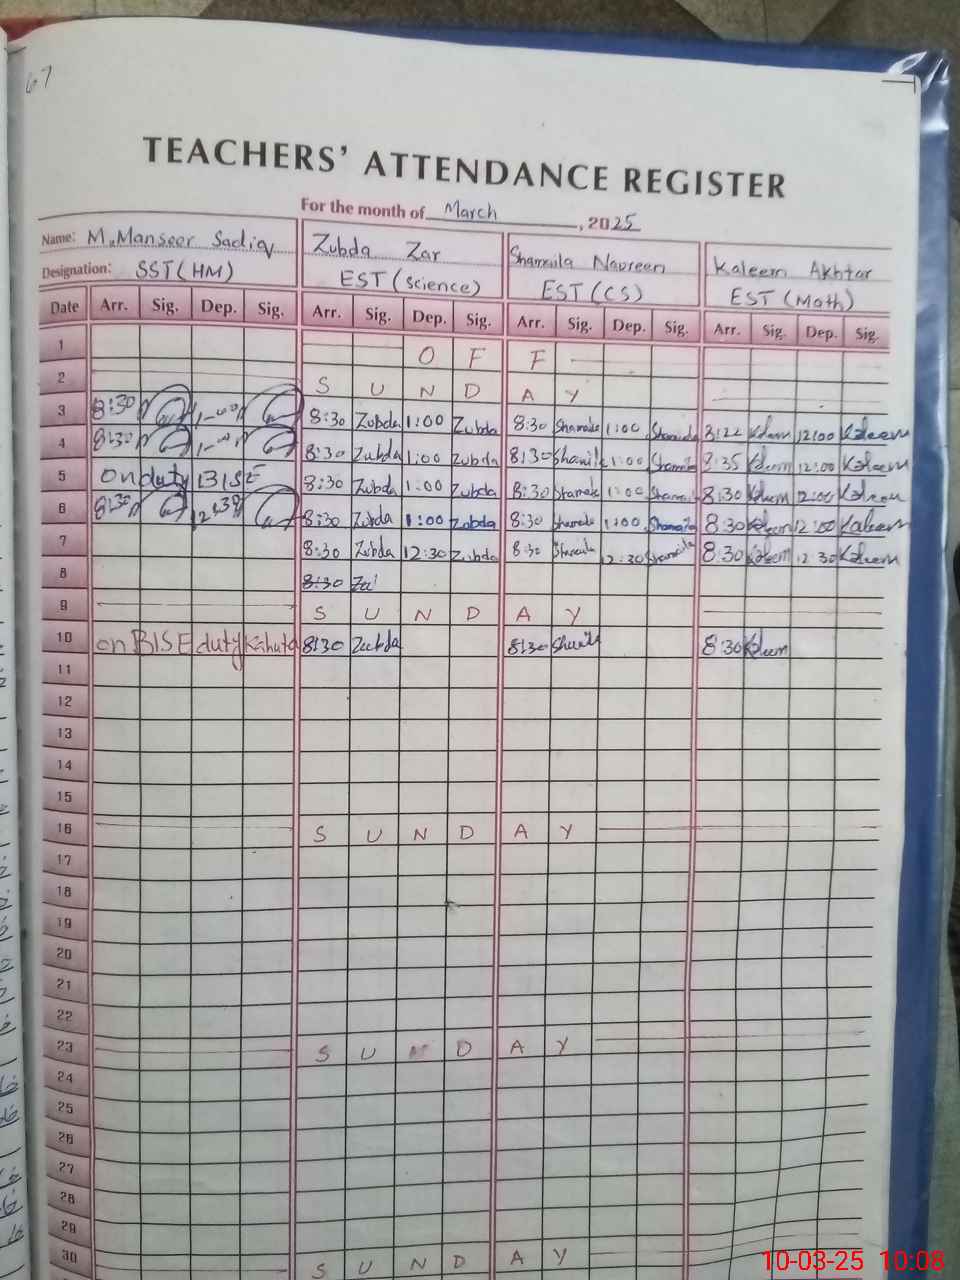 67
TEACHERS' ATTENDANCE REGISTER
For the month of March, 2025
Name: M.Manseer Sadiq Zubda Zar Shamaila Navreen Kaleem Akhtar
Designation: SST(HM) EST(science) EST(CS) EST(Math)
Date Arr. Sig. Dep. Sig. Arr. Sig. Dep. Sig. Arr. Sig. Dep. Sig. Arr. Sig. Dep. Sig.
1 O F F
2 S U N D A Y
3 8:30 1-00 8:30 Zubda 1:00 Zubda 8:30 1:00 8:22 12:00 Kaleem
4 8:30 1-00 8:30 Zubda 1:00 Zubda 8:30 1:00 8:35 12:00 Kaleem
5 On duty BISE 8:30 Zubda 1:00 Zubda 8:30 1:00 8:30 12:00 Kaleem
6 8:30 12:30 8:30 Zubda 1:00 Zubda 8:30 1:00 Shamaila 8:30 12:00 Kaleem
7 8:30 Zubda 12:30 Zubda 8:30 12:30 Shamaila 8:30 12:30 Kaleem
8 8:30
9 S U N D A Y
10 on BISE duty Kahuta 8:30 Zubda 8:30 8:30
11
12
13
14
15
16 S U N D A Y
17
18
19
20
21
22
23 S U N D A Y
24
25
26
27
28
29
30 S U N D A Y
10-03-25 10:08